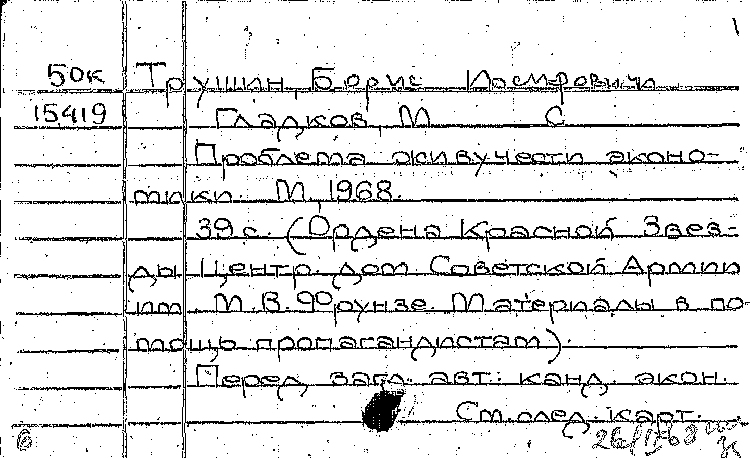 1
50к Трушин, Борис
15419 Гладков, М С
Проблема живучести эконо-
мики. М, 1968.
39 с. (Ордена Красной Звез-
ды Центр. дом Советской Армии
им. М.В. Фрунзе. Материалы в по-
мощь пропагандистам).
Перед загл. авт.: канд. экон.
См. след. карт.
6